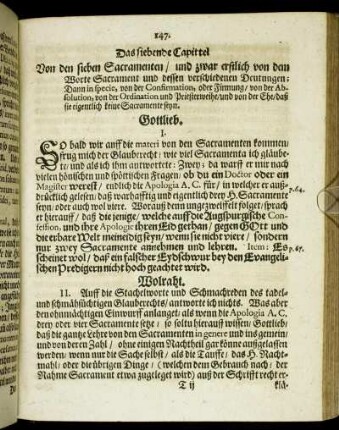 147.
Das siebende Capittel
Von den sieben Sacramenten / und zwar erstlich von dem
Worte Sacrament und dessen verschiedenen Deutungen:
Dann in specie, von der Confirmation, oder Firmung / von der Ab-
solution, von der Ordination und Priesterweihe / und von der Ehe / daß
sie eigentlich keine Sacramente seyn.
Gottlieb.
I.
SO bald wir auff die materi von den Sacramenten kommen /
frug mich der Glaubrecht: wie viel Sacramenta ich gläub-
te / und als ich ihm antwortete: Zwey; da warff er mir nach
vielen hönischen und spöttischen Fragen ob du ein Doctor oder ein
Magister werest / endlich die Apologia A. C. für / in welcher er auß-
drücklich gelesen / daß warhafftig und eigentlich drey H. Sacramente
seyn / oder auch wol viere. Worauß dann ungezweiffelt folget / sprach
er hierauff / daß die jenige / welche auff die Augspurgische Con-
fession, und ihre Apologie ihren Eid gethan / gegen GOtt und
die erbare Welt meineidig seyn / wenn sie nicht vier / sondern
nur zwey Sacramente annehmen und lehren. Item: Es
scheinet wol / daß ein falscher Eydschwur bey den Evangeli-
schen Predigern nicht hoch geachtet wird.
p. 64.
p. 65.
Wolraht.
II. Auff die Stachelworte und Schmachreden des tadel-
und schmähsüchtigen Glauberechts / antworte ich nichts. Was aber
den ohnmächtigen Einwurff anlanget / als wenn die Apologia A. C.
drey oder vier Sacramente setze / so soltu hierauff wissen / Gottlieb
daß die gantze Lehre von den Sacramenten in genere und ins gemein /
und von deren Zahl / ohne einigen Nachtheil gar könne außgelassen
werden / wenn nur die Sache selbst / als die Tauffe / das H. Nacht-
mahl / oder die übrigen Dinge / (welchen dem Gebrauch nach / der
Nahme Sacrament etwa zugeleget wird) auß der Schrifft recht er-
T ij
klä-